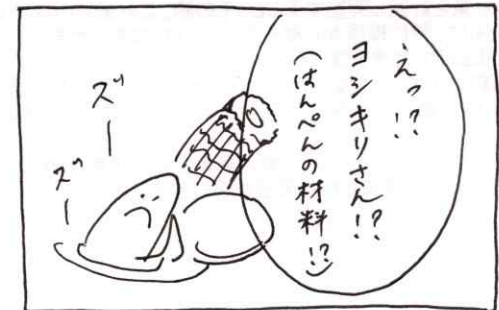 えっ!?
ヨシキリさん!?
(はんぺんの材料!?)
ズー
ズー